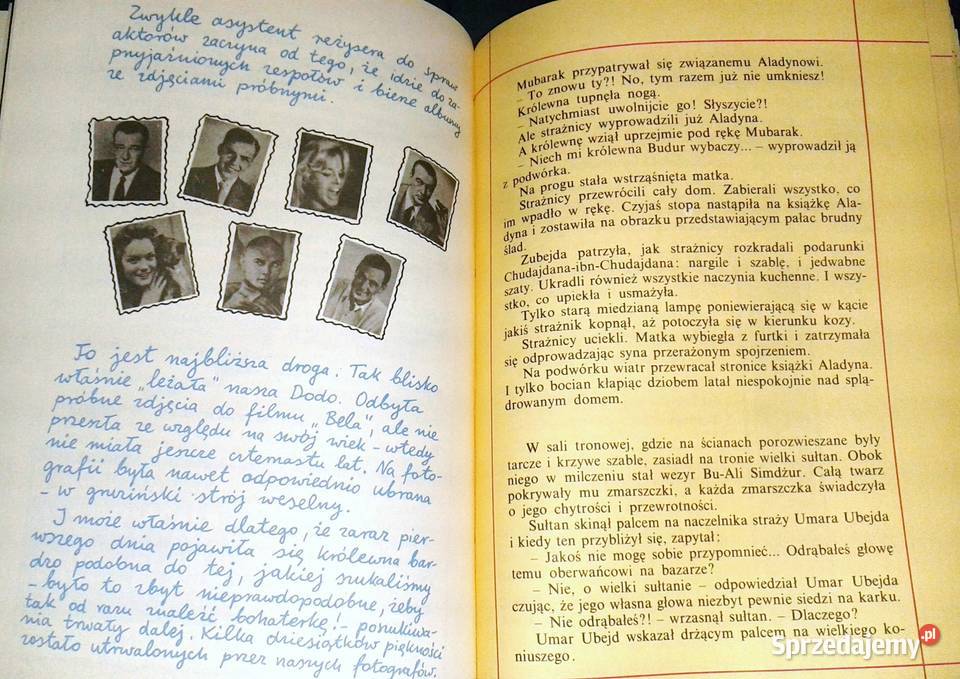 Zwykle asystent reżysera do spraw
aktorów zaczyna od tego, że idzie do za-
przyjaźnionych zespołów i bierze albumy
ze zdjęciami próbnymi.
To jest najbliższa droga. Tak blisko
właśnie „leżała” nasza Dodo. Odbyła
próbne zdjęcia do filmu „Bela”, ale nie
przeszła ze względu na swój wiek – wtedy
nie miała jeszcze czternastu lat. Na foto-
grafii była nawet odpowiednio ubrana
– w gruziński strój weselny.
I może właśnie dlatego, że zaraz pier-
wszego dnia pojawiła się królewna bar-
dzo podobna do tej, jakiej szukaliśmy
– było to zbyt nieprawdopodobne, żeby
tak od razu znaleźć bohaterkę! – poszukiwa-
nia trwały dalej. Kilka dziesiątków piękności
zostało utrwalonych przez naszych fotografów.
Mubarak przypatrywał się związanemu Aladynowi.
– To znowu ty?! No, tym razem już nie umkniesz!
Królewna tupnęła nogą.
– Natychmiast uwolnijcie go! Słyszycie?!
Ale strażnicy wyprowadzili już Aladyna.
A królewnę wziął uprzejmie pod rękę Mubarak.
– Niech mi królewna Budur wybaczy... – wyprowadził ją
z podwórka.
Na progu stała wstrząśnięta matka.
Strażnicy przewrócili cały dom. Zabierali wszystko, co
im wpadło w rękę. Czyjaś stopa nastąpiła na książkę Ala-
dyna i zostawiła na obrazku przedstawiającym pałac brudny
ślad.
Zubejda patrzyła, jak strażnicy rozkradali podarunki
Chudajdana-ibn-Chudajdana: nargile i szablę, i jedwabne
szaty. Ukradli również wszystkie naczynia kuchenne. I wszy-
stko, co upiekła i usmażyła.
Tylko starą miedzianą lampę poniewierającą się w kącie
jakiś strażnik kopnął, aż potoczyła się w kierunku kozy.
Strażnicy uciekli. Matka wybiegła z furtki i zatrzymała
się odprowadzając syna przerażonym spojrzeniem.
Na podwórku wiatr przewracał stronice książki Aladyna.
I tylko bocian kłapiąc dziobem latał niespokojnie nad splą-
drowanym domem.
W sali tronowej, gdzie na ścianach porozwieszane były
tarcze i krzywe szable, zasiadł na tronie wielki sułtan. Obok
niego w milczeniu stał wezyr Bu-Ali Simdżur. Całą twarz
pokrywały mu zmarszczki, a każda zmarszczka świadczyła
o jego chytrości i przewrotności.
Sułtan skinął palcem na naczelnika straży Umara Ubejda
i kiedy ten przybliżył się, zapytał:
– Jakoś nie mogę sobie przypomnieć... Odrąbałeś głowę
temu oberwańcowi na bazarze?
– Nie, o wielki sułtanie – odpowiedział Umar Ubejda
czując, że jego własna głowa niezbyt pewnie siedzi na karku.
– Nie odrąbałeś?! – wrzasnął sułtan. – Dlaczego?
Umar Ubejd wskazał drżącym palcem na wielkiego ko-
niuszego.
Sprzedajemy.pl